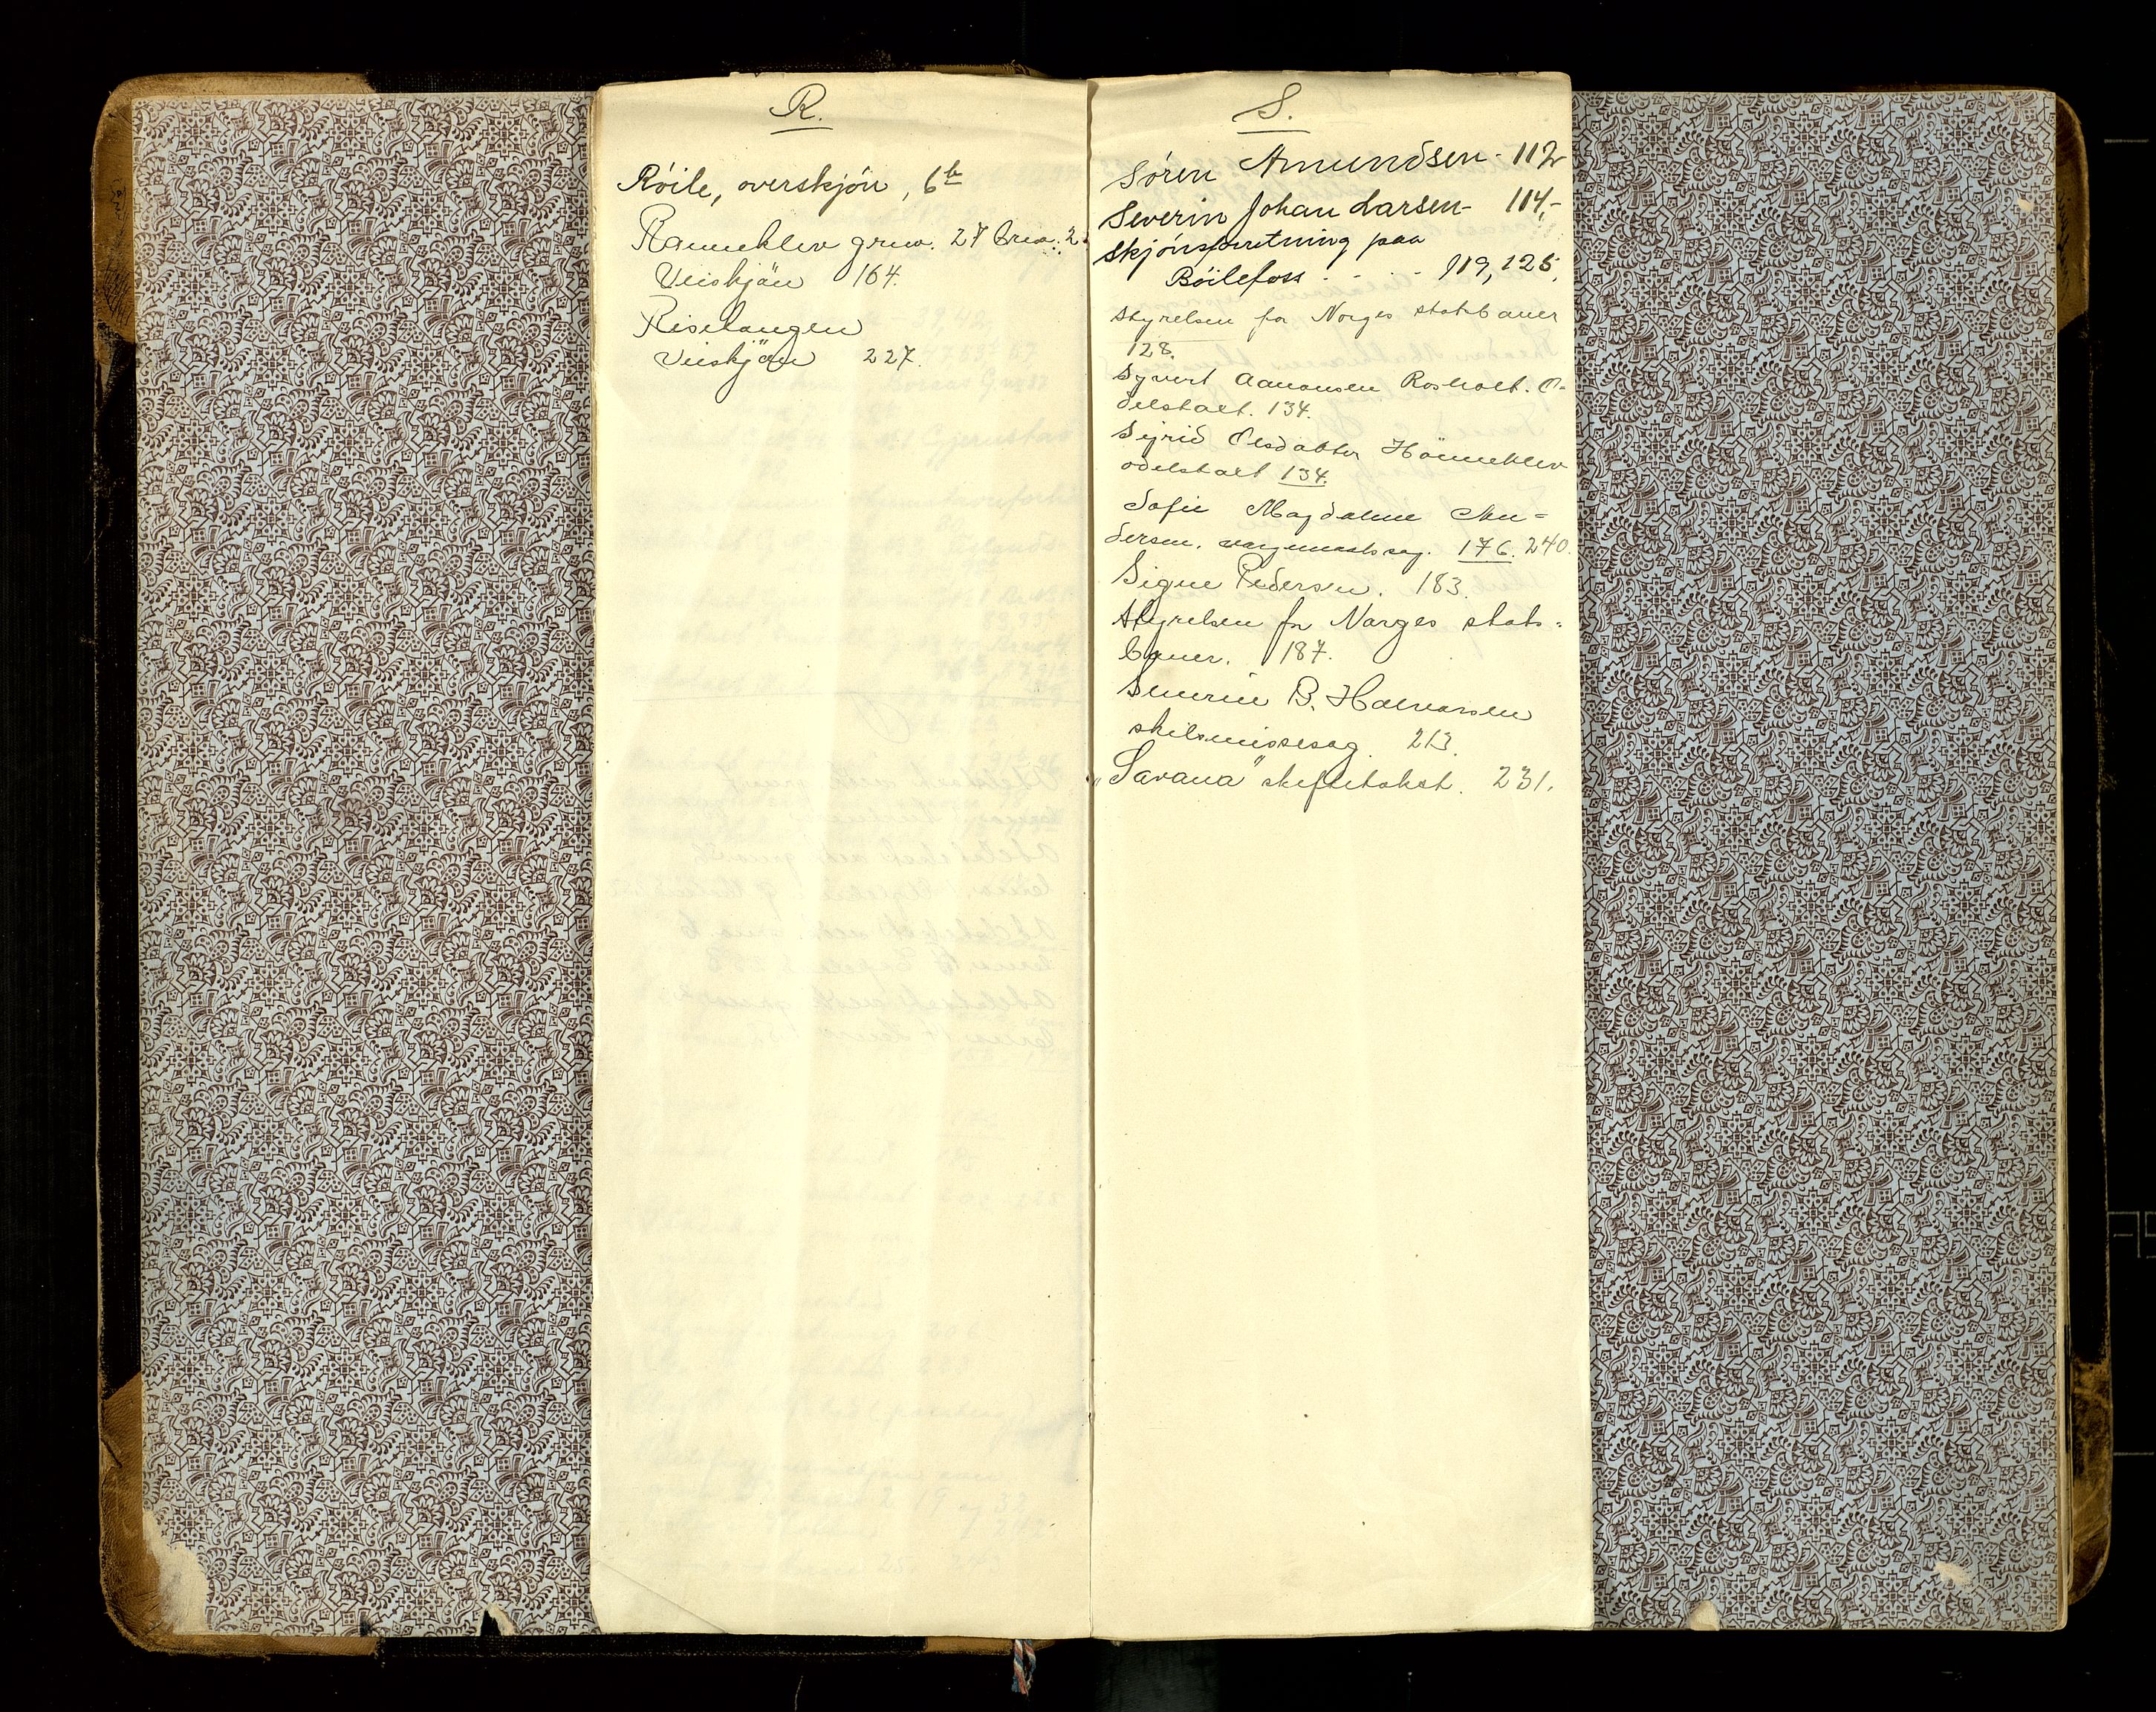 R.
Röile, overskjön, 6b
Ranneklev grno. 27 brno. 2.
Veiskjön 164.
Riselangen
Veiskjön 227.
S.
Søren Amundsen - 112
Severin Johan Larsen - 114,-
Skjönsforretning paa
Böilefoss - - - 119, 125.
Styrelsen for Norges statsbaner
128.
Syvert Aanonsen Rosholt. O-
delstakt. 134.
Sigrid Olsdatter Hönneklev
odelstakt 134.
Sofie Magdalene An=
dersen. vergemaalssag. 176. 240.
Signe Pedersen. 183.
Styrelsen for Norges stats=
baner. 187.
Severin B. Halvorsen
skilsmissesag. 213.
"Savana" skiftetakst. 231.